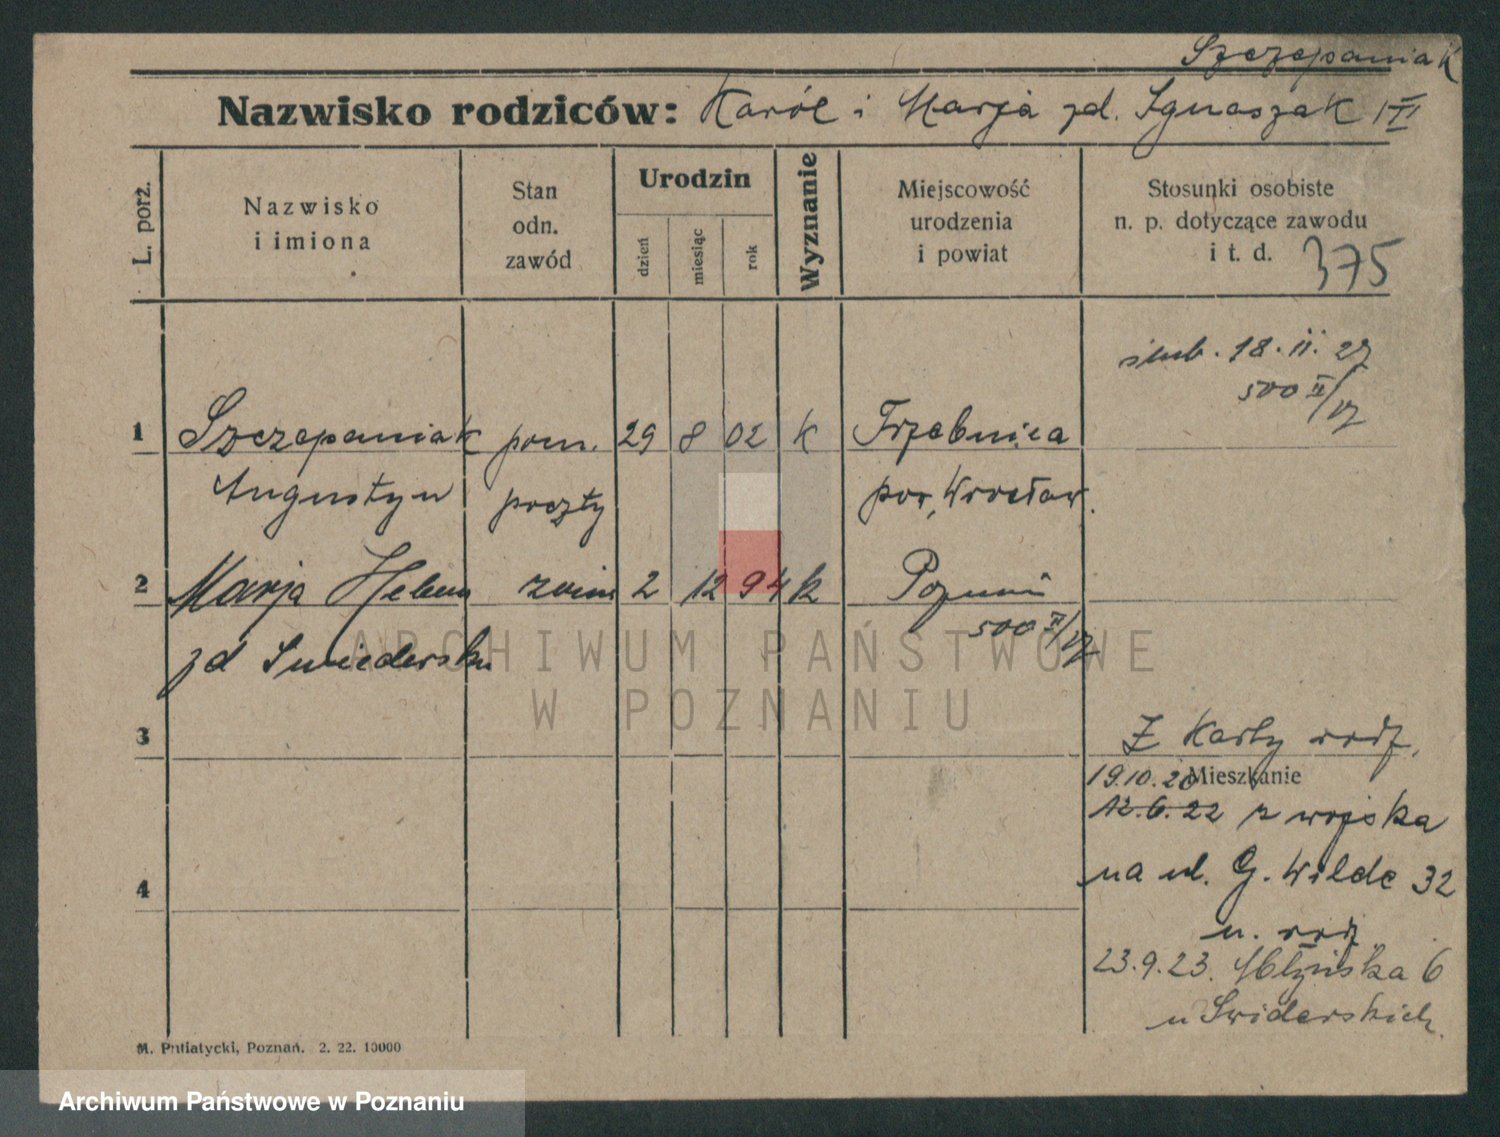 Szczepaniak
Nazwisko rodziców: Karól i Marja zd. Ignaszak
L. porż.
Nazwisko
i imiona
Stan
odn.
zawód
Urodzin
dzień
miesiąc
rok
Wyznanie
Miejscowość
urodzenia
i powiat
Stosunki osobiste
n. p. dotyczące zawodu
i t. d. 375
ślub. 18. II. 27
500 II/27
1 Szczepaniak pom. 29 8 02 k Trzebnica
Augustyn poczty pow. Wrocław.
2 Marja Helena 2 12 94 k Poznań
500 II/27
zd Świederska
ARCHIWUM PAŃSTWOWE
W POZNANIU
3
Z Karty rodz.
19.10.20 Mieszkanie
12.6.22 z wojska
4
na ul. G. Wilde 32
u. rodz
23.9.23. Młyńska 6
u Świderskich.
M. Putiatycki, Poznań. 2. 22. 10000
Archiwum Państwowe w Poznaniu